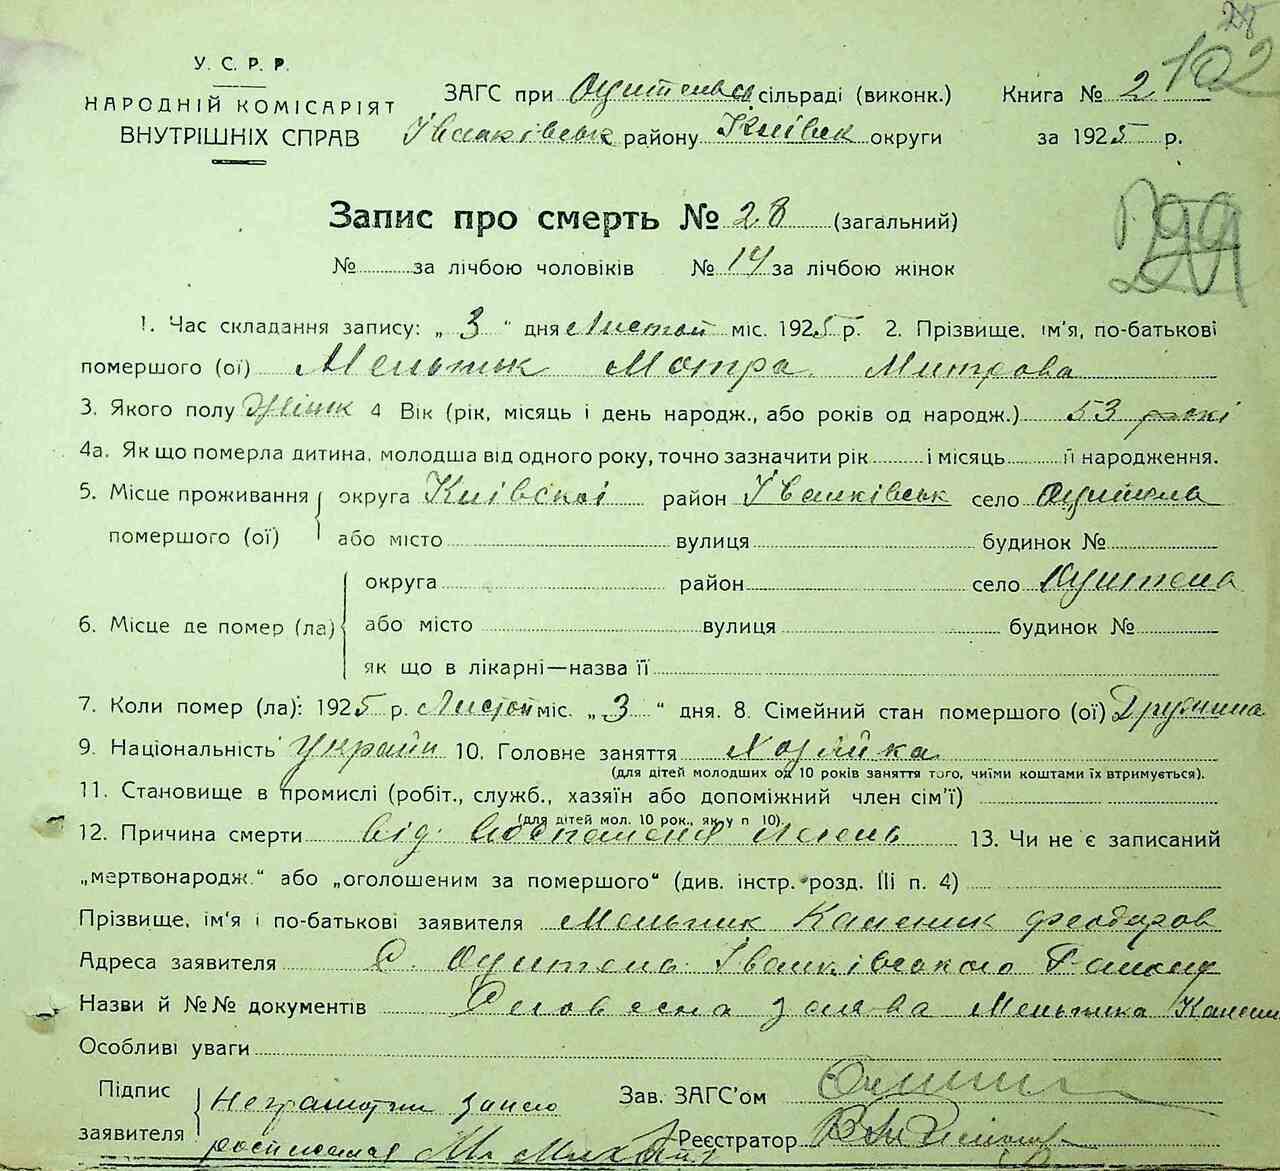 28
102
У. С. Р. Р.
НАРОДНІЙ КОМІСАРІЯТ
ВНУТРІШНІХ СПРАВ
ЗАГС при сільраді (виконк.)
Іванківськ району Київск округи
Книга № 2
за 1925 р.
Запис про смерть № 28 (загальний)
№ за лічбою чоловіків № 14 за лічбою жінок
1. Час складання запису: „ 3 " дня Листоп міс. 1925 р. 2. Прізвище, ім'я, по-батькові
помершого (ої) Мельник Мотра Митрова
3. Якого полу Жінк 4 Вік (рік, місяць і день народж., або років од народж.) 53 рокі
4а. Як що померла дитина, молодша від одного року, точно зазначити рік і місяць її народження.
5. Місце проживання округа Київскоі район Іванківськ село
помершого (ої) або місто вулиця будинок №
округа район село
6. Місце де помер (ла) або місто вулиця будинок №
як що в лікарні—назва її
7. Коли помер (ла): 1925 р. Листоп міс. „ 3 " дня. 8. Сімейний стан помершого (ої) Дружина
9. Національність Україн 10. Головне заняття Хозяйка
(для дітей молодших од 10 років заняття того, чиїми коштами їх втримується).
11. Становище в промислі (робіт., служб., хазяїн або допоміжний член сім'ї)
(для дітей мол. 10 рок., як у п 10).
12. Причина смерти від 13. Чи не є записаний
„мертвонародж." або „оголошеним за помершого" (див. інстр. розд. III п. 4)
Прізвище, ім'я і по-батькові заявителя Мельник Каленик Феодоров
Адреса заявителя С. Іванківського Району
Назви й №№ документів Словесна заява Мельника Калени
Особливі уваги
Підпис
заявителя Неграмотни
росписался
Зав. ЗАГС'ом
Реєстратор